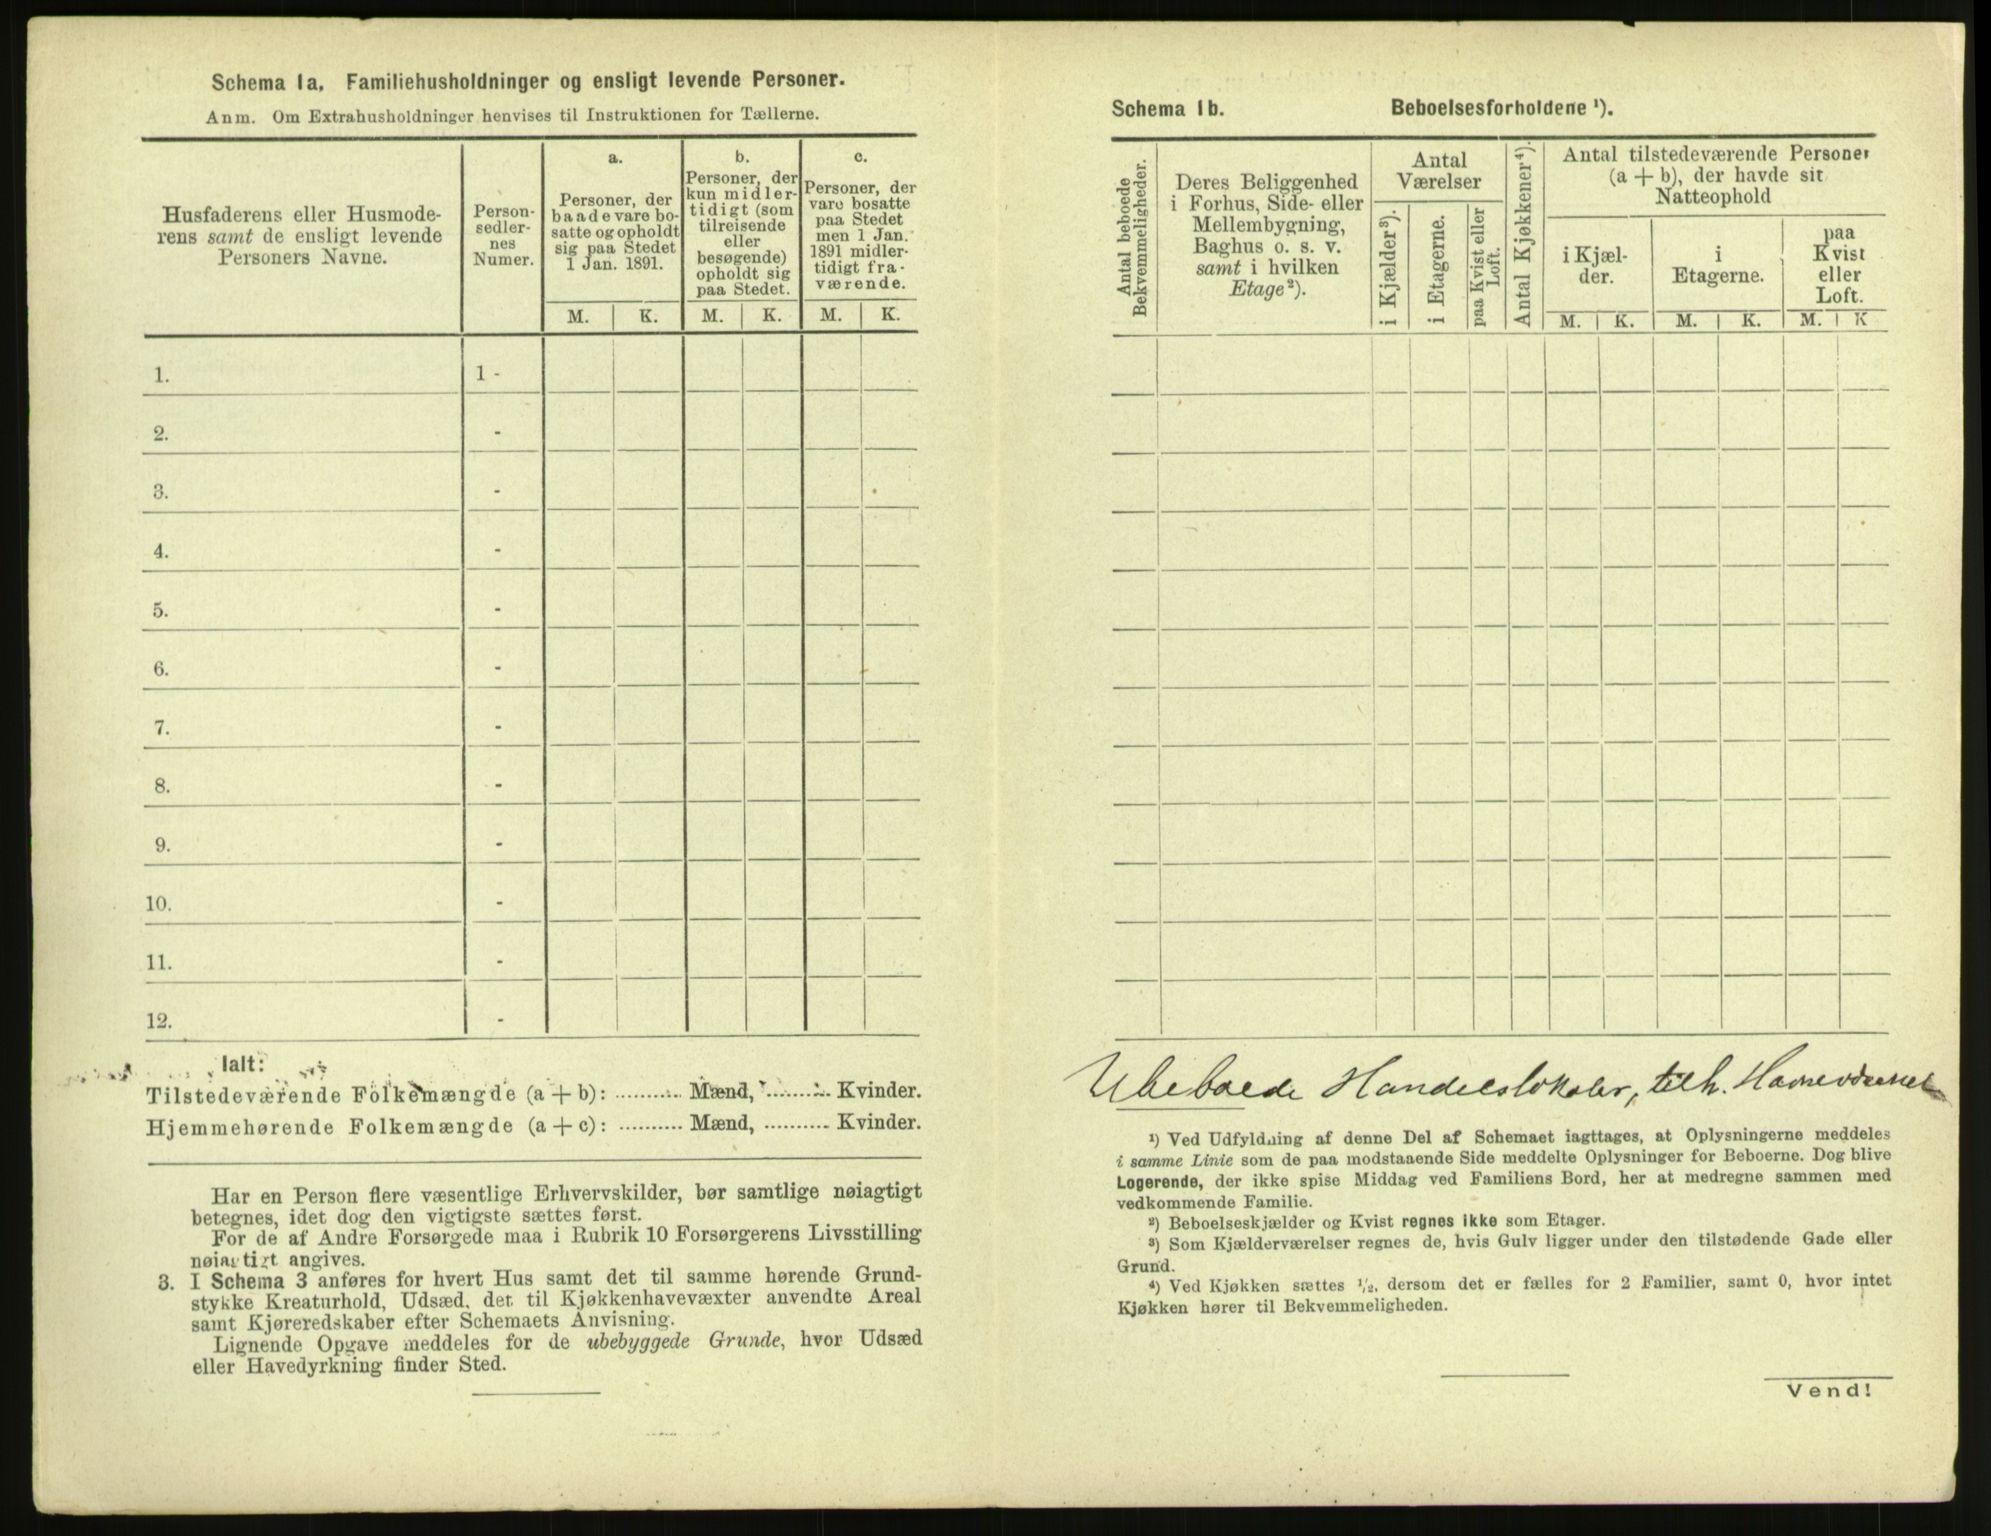 Schema 1a. Familiehusholdninger og ensligt levende Personer.
Anm. Om Extrahusholdninger henvises til Instruktionen for Tællerne.
Husfaderens eller Husmode-
rens samt de ensligt levende
Personers Navne.
Person-
sedler-
nes
Numer.
a.
Personer, der
baade vare bo-
satte og opholdt
sig paa Stedet
1 Jan. 1891.
b.
Personer, der
kun midler-
tidigt (som
tilreisende
eller
besøgende)
opholdt sig
paa Stedet.
c.
Personer, der
vare bosatte
paa Stedet
men 1 Jan.
1891 midler-
tidigt fra-
værende.
M. K. M. K. M. K.
1. 1 -
2. -
3. -
4. -
5. -
6. -
7. -
8. -
9. -
10. -
11. -
12. -
Ialt:
Tilstedeværende Folkemængde (a + b): .......... Mænd, .......... Kvinder.
Hjemmehørende Folkemængde (a + c): .......... Mænd, .......... Kvinder.
Har en Person flere væsentlige Erhvervskilder, bør samtlige nøiagtigt
betegnes, idet dog den vigtigste sættes først.
For de af Andre Forsørgede maa i Rubrik 10 Forsørgerens Livsstilling
nøiagtigt angives.
3. I Schema 3 anføres for hvert Hus samt det til samme hørende Grund-
stykke Kreaturhold, Udsæd, det til Kjøkkenhavevæxter anvendte Areal
samt Kjøreredskaber efter Schemaets Anvisning.
Lignende Opgave meddeles for de ubebyggede Grunde, hvor Udsæd
eller Havedyrkning finder Sted.
Schema 1b. Beboelsesforholdene ¹).
Antal beboede
Bekvemmeligheder.
Deres Beliggenhed
i Forhus, Side- eller
Mellembygning,
Baghus o. s. v.
samt i hvilken
Etage²).
Antal
Værelser
i Kjælder³).
i Etagerne.
paa Kvist eller
Loft.
Antal Kjøkkener⁴).
Antal tilstedeværende Personer
(a + b), der havde sit
Natteophold
i Kjæl-
der.
i
Etagerne.
paa
Kvist
eller
Loft.
M. K. M. K. M. K
Ubeboede Handelslokaler, tilh. Havnevæsenet
¹) Ved Udfyldning af denne Del af Schemaet iagttages, at Oplysningerne meddeles
i samme Linie som de paa modstaaende Side meddelte Oplysninger for Beboerne. Dog blive
Logerende, der ikke spise Middag ved Familiens Bord, her at medregne sammen med
vedkommende Familie.
²) Beboelseskjælder og Kvist regnes ikke som Etager.
³) Som Kjælderværelser regnes de, hvis Gulv ligger under den tilstødende Gade eller
Grund.
⁴) Ved Kjøkken sættes ½, dersom det er fælles for 2 Familier, samt 0, hvor intet
Kjøkken hører til Bekvemmeligheden.
Vend!